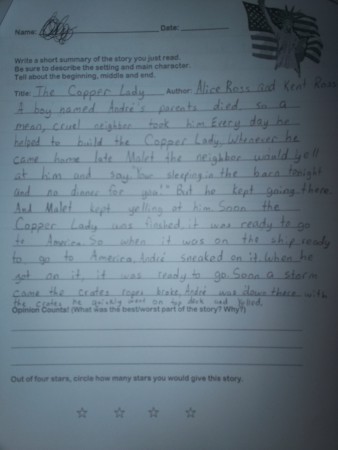 Name: Date:
Write a short summary of the story you just read.
Be sure to describe the setting and main character.
Tell about the beginning, middle and end.
Title: The Copper Lady Author: Alice Ross and Kent Ross
A boy named André's parents died so a
mean, cruel neighbor took him. Every day he
helped to build the Copper Lady. Whenever he
came home late Malet the neighbor would yell
at him and say, "Your sleeping in the barn tonight
and no dinner for you!" But he kept going there.
And Malet kept yelling at him. Soon the
Copper Lady was finshed, it was ready to go
to America. So when it was on the ship ready
to go to America, André sneaked on it. When he
got on it, it was ready to go. Soon a storm
came the crates ropes broke. André was down there with
the crates he quickly went on top deck and
Opinion Counts! (What was the best/worst part of the story? Why?)
Out of four stars, circle how many stars you would give this story.